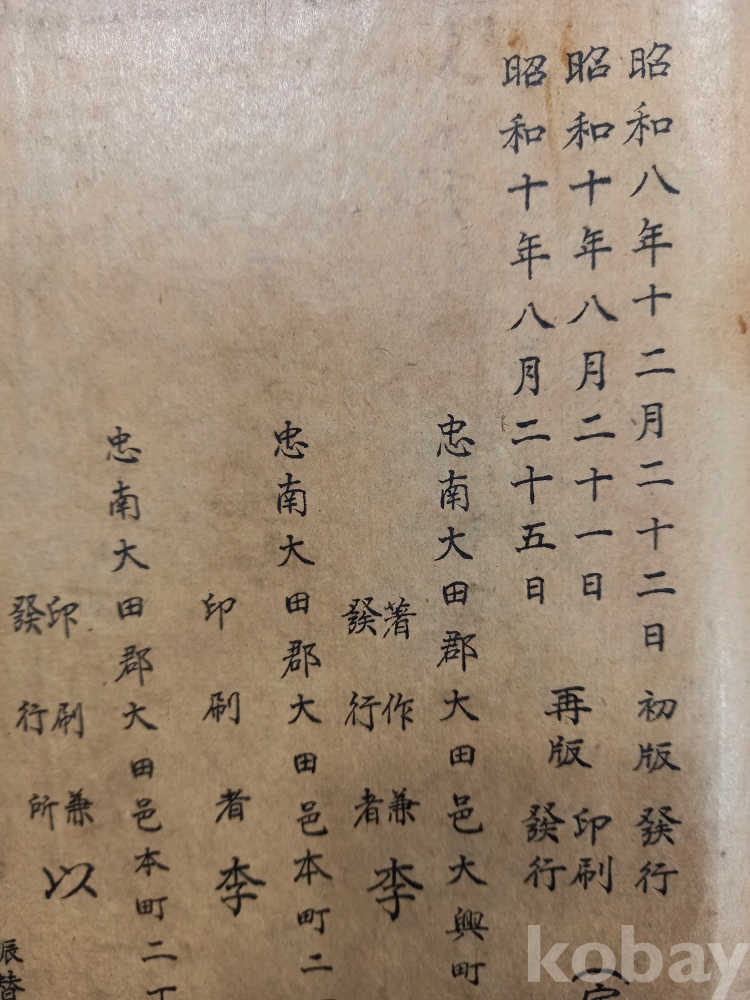 昭和八年十二月二十二日 初版 發行
昭和十年八月二十一日 再版 印刷
昭和十年八月二十五日 發行
忠南大田郡大田邑大興町
著作兼
發行者 李
忠南大田郡大田邑本町二
印刷者 李
忠南大田郡大田邑本町二丁
印刷兼
發行所 以
振替
kobay